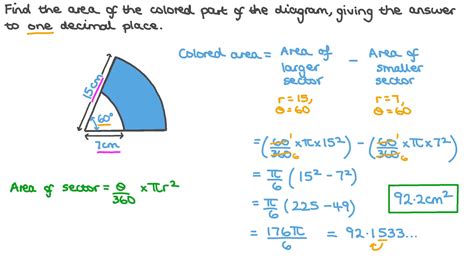 Find the area of the colored part of the diagram, giving the answer
to one decimal place.
Colored area = Area of larger sector - Area of smaller sector
r=15, θ=60
r=7, θ=60
15cm
60°
7cm
Area of sector = θ/360 × πr²
= (60/360 × π × 15²) - (60/360 × π × 7²)
1 6 1 6
= π/6 (15² - 7²)
= π/6 (225 - 49)
= 176π/6 = 92.1533...
92.2cm²